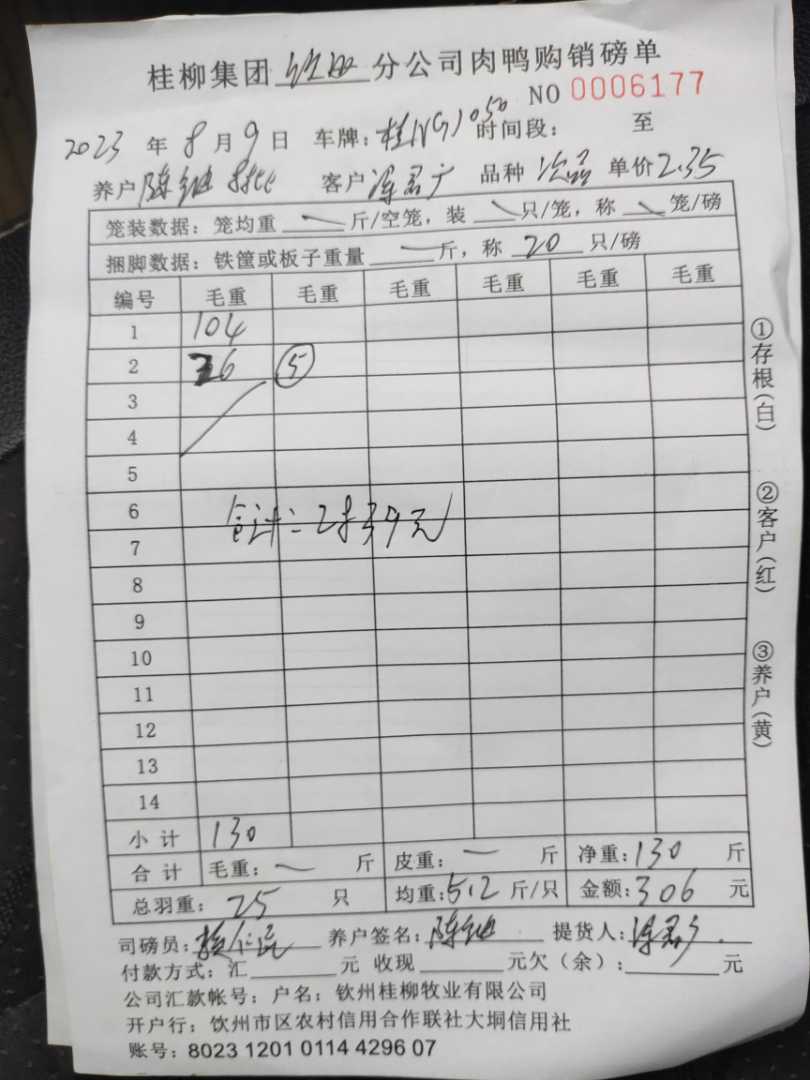 桂柳集团 钦州 分公司肉鸭购销磅单
NO 0006177
2023 年 8 月 9 日 车牌：桂N91050 时间段： 至
养户 陈 客户 品种 次品 单价 2.35
笼装数据：笼均重 — 斤/空笼，装 — 只/笼，称 — 笼/磅
捆脚数据：铁筐或板子重量 — 斤，称 20 只/磅
编号 毛重 毛重 毛重 毛重 毛重 毛重
1 104
2 26 ⑤
3
4
5
6
7
合计：
元
8
9
10
11
12
13
14
小计 130
合计 毛重：— 斤 皮重：— 斤 净重：130 斤
总羽重：25 只 均重：5.2 斤/只 金额：306 元
司磅员： 养户签名：陈 提货人：
付款方式：汇 元 收现 元欠（余）： 元
公司汇款帐号：户名：钦州桂柳牧业有限公司
开户行：饮州市区农村信用合作联社大垌信用社
账号：8023 1201 0114 4296 07
①存根(白)
②客户(红)
③养户(黄)